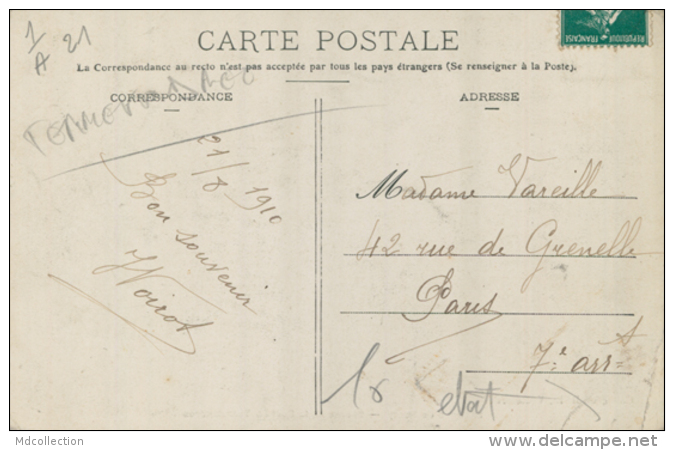 1
A 21
CARTE POSTALE
La Correspondance au recto n'est pas acceptée par tous les pays étrangers (Se renseigner à la Poste).
CORRESPONDANCE
ADRESSE
21/8 1910
Bon souvenir
HVoirot
Madame Vareille
42 rue de Grenelle
Paris
7e arrt
RÉPUBLIQUE FRANÇAISE
Mdcollection
www.delcampe.net